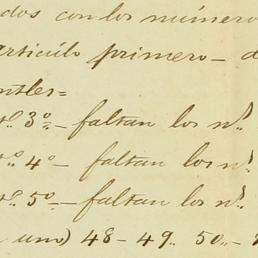 dos con los número
artículo primero — d
ntles =
tº. 3º — faltan los nºs
tº. 4º — faltan los nºs
tº. 5º — faltan los nºs
uno) 48 — 49.. 50.. —